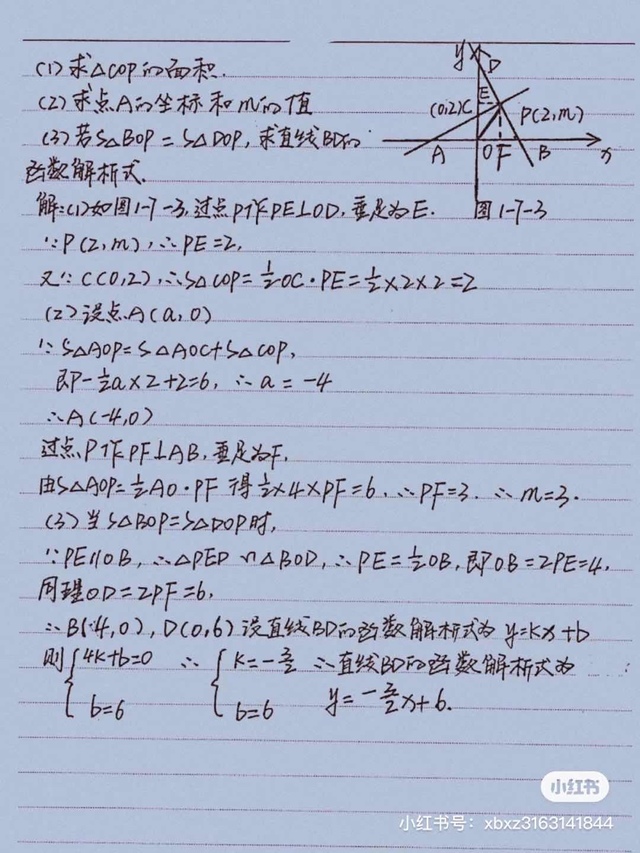 (1)求△COP的面积.
(2)求点A的坐标和m的值
(3)若S△BOP=S△DOP,求直线BD的
函数解析式.
y
D
E
(0,2)C
P(2,m)
A
O
F
B
x
图1-7-3
解:(1)如图1-7-3,过点P作PE⊥OD,垂足为E.
∵P(2,m),∴PE=2,
又∵C(0,2),∴S△COP=½OC·PE=½×2×2=2
(2)设点A(a,0)
∵S△AOP=S△AOC+S△COP,
即-½a×2+2=6,∴a=-4
∴A(-4,0)
过点P作PF⊥AB,垂足为F,
由S△AOP=½AO·PF 得½×4×PF=6.∴PF=3.∴m=3.
(3)当S△BOP=S△DOP时,
∵PE∥OB,∴△PED∽△BOD,∴PE=½OB,即OB=2PE=4,
同理OD=2PF=6,
∴B(4,0),D(0,6)设直线BD的函数解析式为y=kx+b
则{4k+b=0 ∴{k=-3/2 ∴直线BD的函数解析式为
b=6 b=6 y=-3/2x+6.
小红书
小红书号:xbxz3163141844